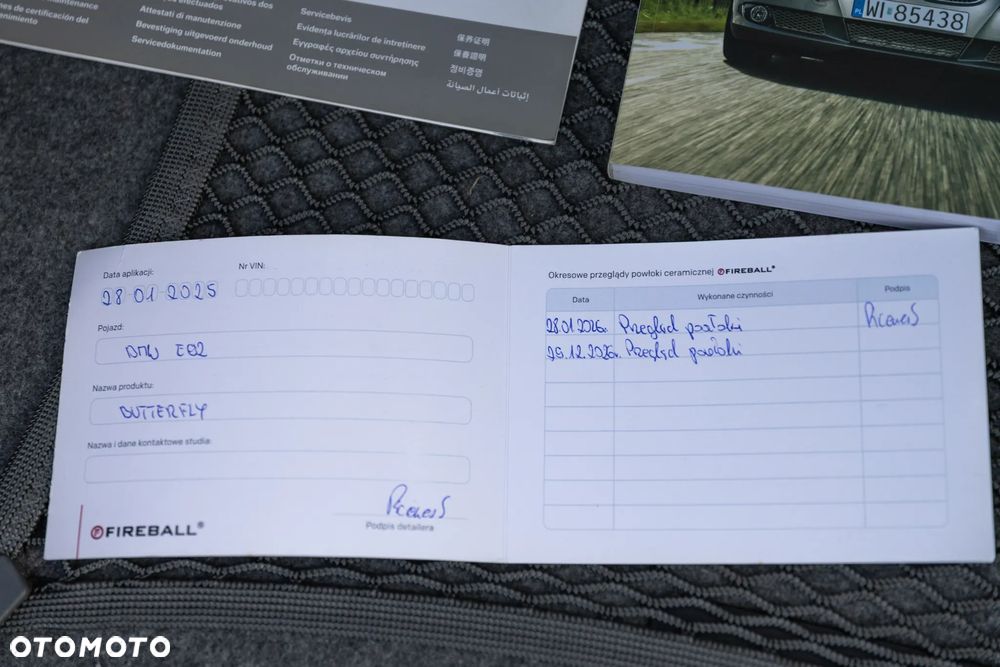 maintenance
nes de certificación del
enimiento
Attestati di manutenzione
Bevestiging uitgevoerd onderhoud
Servicedokumentation
Servicebevis
Evidența lucrărilor de întreținere
Εγγραφές αρχείου συντήρησης
Отметки о техническом
обслуживании
保养证明
保養證明
정비증명
إثباتات أعمال الصيانة
PL WI 85438
Data aplikacji:
28-01-2025
Nr VIN:
Pojazd:
BMW E92
Nazwa produktu:
BUTTERFLY
Nazwa i dane kontaktowe studia:
Podpis detailera
FIREBALL®
Okresowe przeglądy powłoki ceramicznej FIREBALL®
Data Wykonane czynności Podpis
28.01.2026r. Przegląd powłoki
29.12.2026r. Przegląd powłoki
OTOMOTO